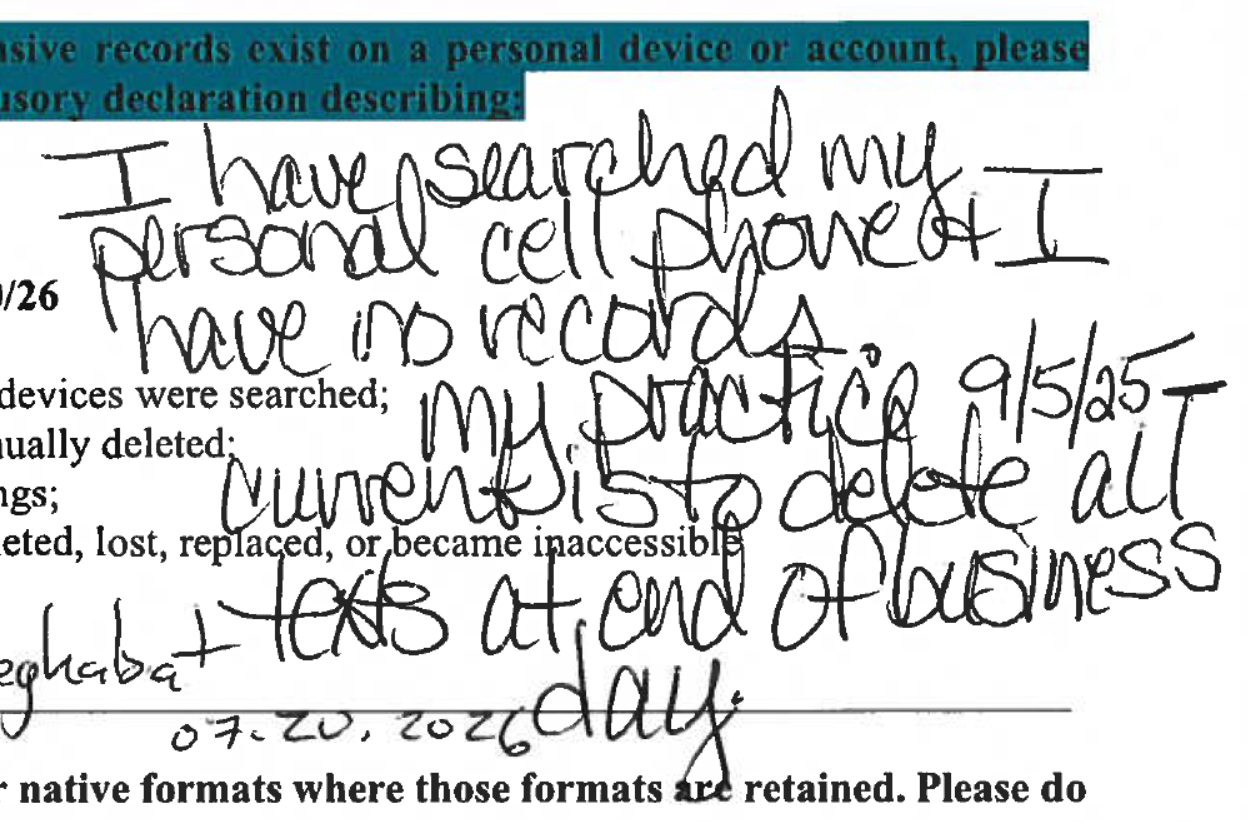 nsive records exist on a personal device or account, please
usory declaration describing:
I have searched my
personal cell phone & I
have no records.
0/26
My practice 9/5/25 -
devices were searched;
nually deleted;
current is to delete all
ngs;
leted, lost, replaced, or became inaccessible
texts at end of business
eghabat
day.
07.20.2026
r native formats where those formats are retained. Please do